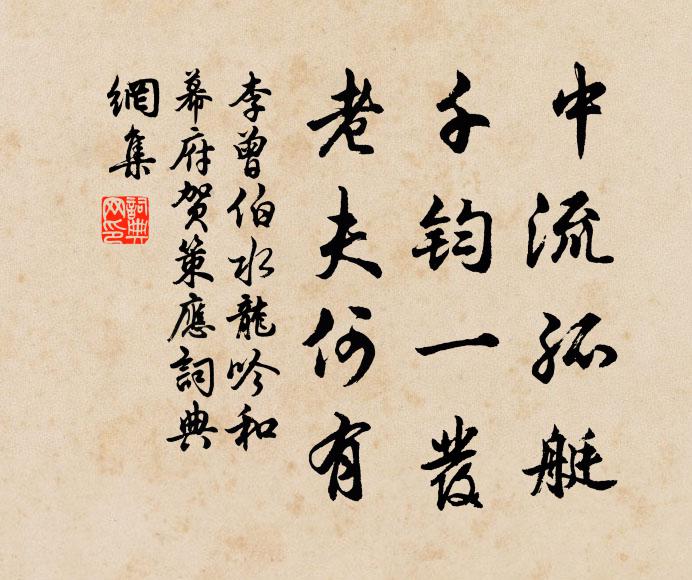 中流孤艇
千鈞一發
老夫何有
李曾伯水龍吟和
幕府贺策應詞典
網集
詞典
网印